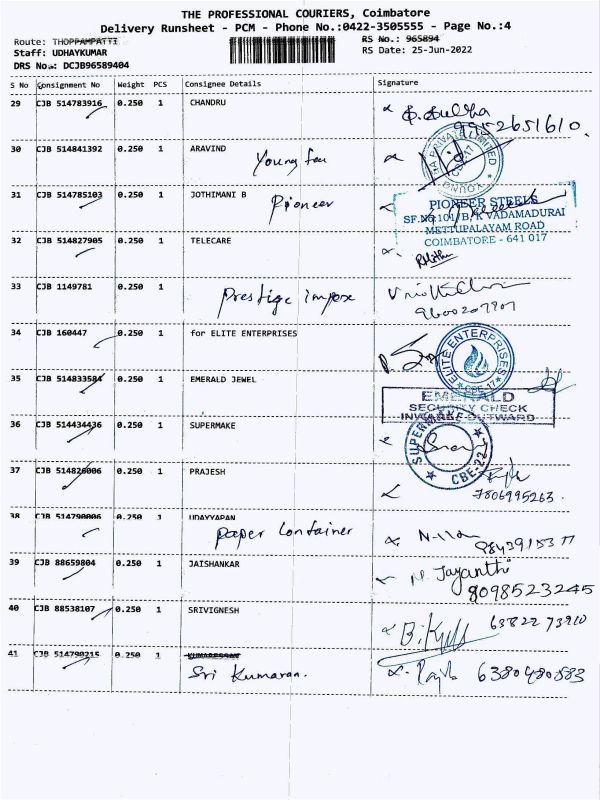 THE PROFESSIONAL COURIERS, Coimbatore
Delivery Runsheet - PCM - Phone No.:0422-3505555 - Page No.:4
Route: THOPPAMPATTI
RS No.: 965894
Staff: UDHAYKUMAR
RS Date: 25-Jun-2022
DRS No.: DCJB96589404
S No Consignment No Weight PCS Consignee Details Signature
29 CJB 514783916 0.250 1 CHANDRU
9952651610.
30 CJB 514841392 0.250 1 ARAVIND
Young
PRIVATE LIMITED
31 CJB 514785103 0.250 1 JOTHIMANI B
Pioneer
PIONEER STEELS
SF.NO:101/B, K VADAMADURAI
METTUPALAYAM ROAD
COIMBATORE - 641 017
32 CJB 514827905 0.250 1 TELECARE
33 CJB 1149781 0.250 1
Prestige impex
9600207907
34 CJB 160447 0.250 1 for ELITE ENTERPRISES
ELITE ENTERPRISES
CBE-17
35 CJB 514833584 0.250 1 EMERALD JEWEL
EMERALD
SECURITY CHECK
INWARD / OUTWARD
36 CJB 514434436 0.250 1 SUPERMAKE
CBE-22
37 CJB 514826006 0.250 1 PRAJESH
7806995263.
38 CJB 514790006 0.250 1 UDAYYAPAN
paper Container
39 CJB 88659804 0.250 1 JAISHANKAR
N. Jayanthi
8098523245
40 CJB 88538107 0.250 1 SRIVIGNESH
63822 73910
41 CJB 514790215 0.250 1 KUMARESSAN
Sri Kumaran.
6380480883